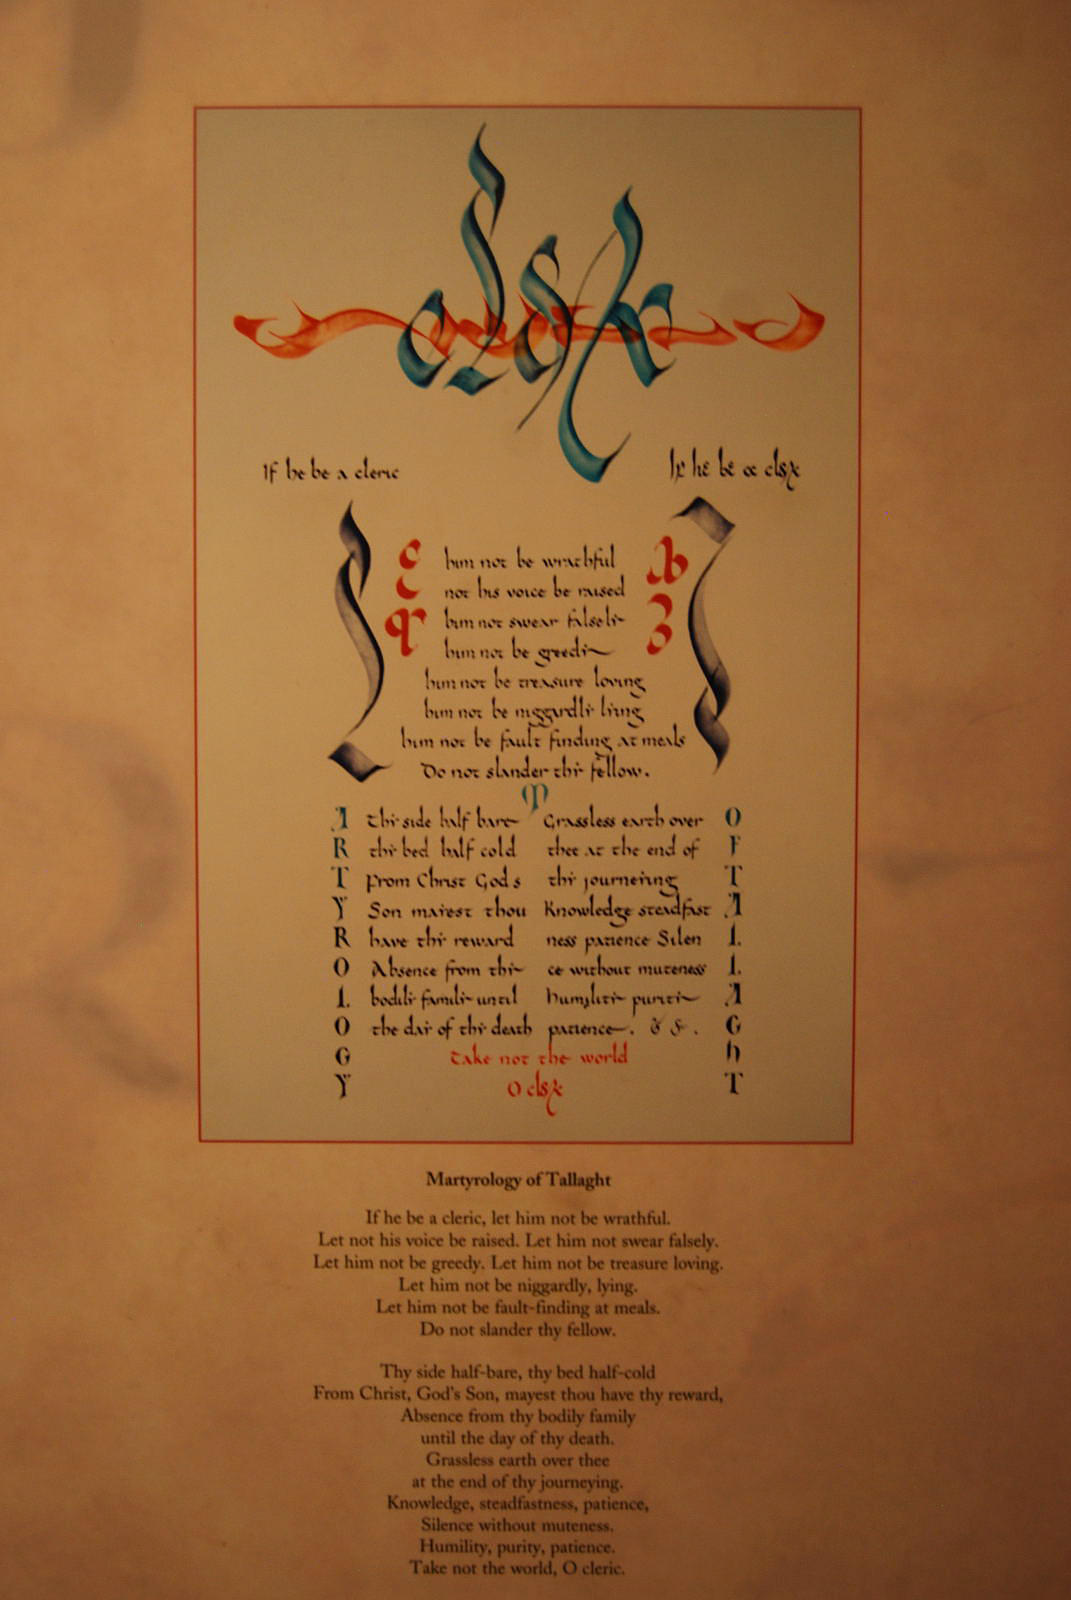 If he be a cleric
If he be a
him not be wrathful
not his voice be raised
him not swear falseli
him not be greedi
him not be treasure loving
him not be niggardli liing
him not be fault finding at meals
Do not slander thi fellow.
M
A Thi side half bare Grassless earth over O
R thi bed half cold thee at the end of F
T From Christ God s thi journeiing T
Y Son maiest thou Knowledge steadfast A
R have thi reward ness patience Silen L
O Absence from thi ce without muteness L
L bodili famili until humiliti puriti A
O the dai of thi death patience. & & . G
G Take not the world h
Y O T
Martyrology of Tallaght
If he be a cleric, let him not be wrathful.
Let not his voice be raised. Let him not swear falsely.
Let him not be greedy. Let him not be treasure loving.
Let him not be niggardly, lying.
Let him not be fault-finding at meals.
Do not slander thy fellow.
Thy side half-bare, thy bed half-cold
From Christ, God's Son, mayest thou have thy reward,
Absence from thy bodily family
until the day of thy death.
Grassless earth over thee
at the end of thy journeying.
Knowledge, steadfastness, patience,
Silence without muteness.
Humility, purity, patience.
Take not the world, O cleric.